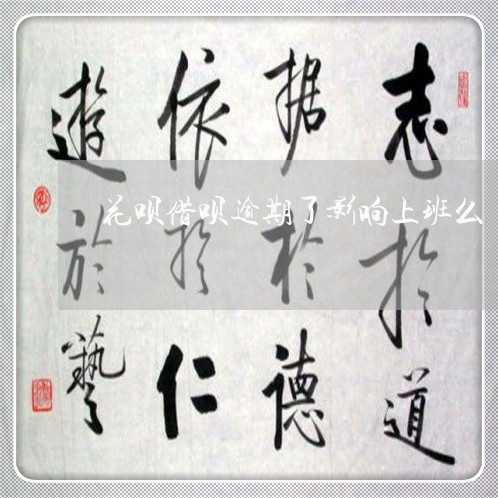 志於道
据於德
依於仁
遊於藝
花呗借呗逾期了影响上班么